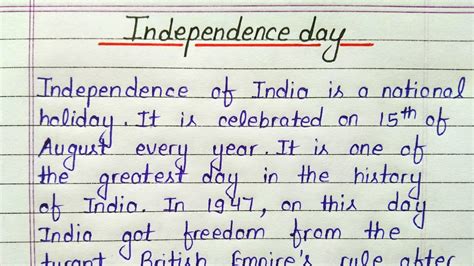 Independence day
Independence of India is a national
holiday. It is celebrated on 15th of
August every year. It is one of
the greatest day in the history
of India. In 1947, on this day
India got freedom from the
tyrant British Empire's rule after